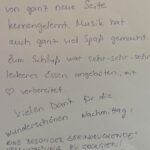 von ganz neue Seite
kennengelernt. Musik hat
auch ganz viel Spaß gemacht.
Zum Schluß war sehr-sehr-sehr
leckeres Essen angeboten, mit
♡ vorbereitet.
Vielen Dank für die
wunderschönen Nachmittag!
EINE BESONDER